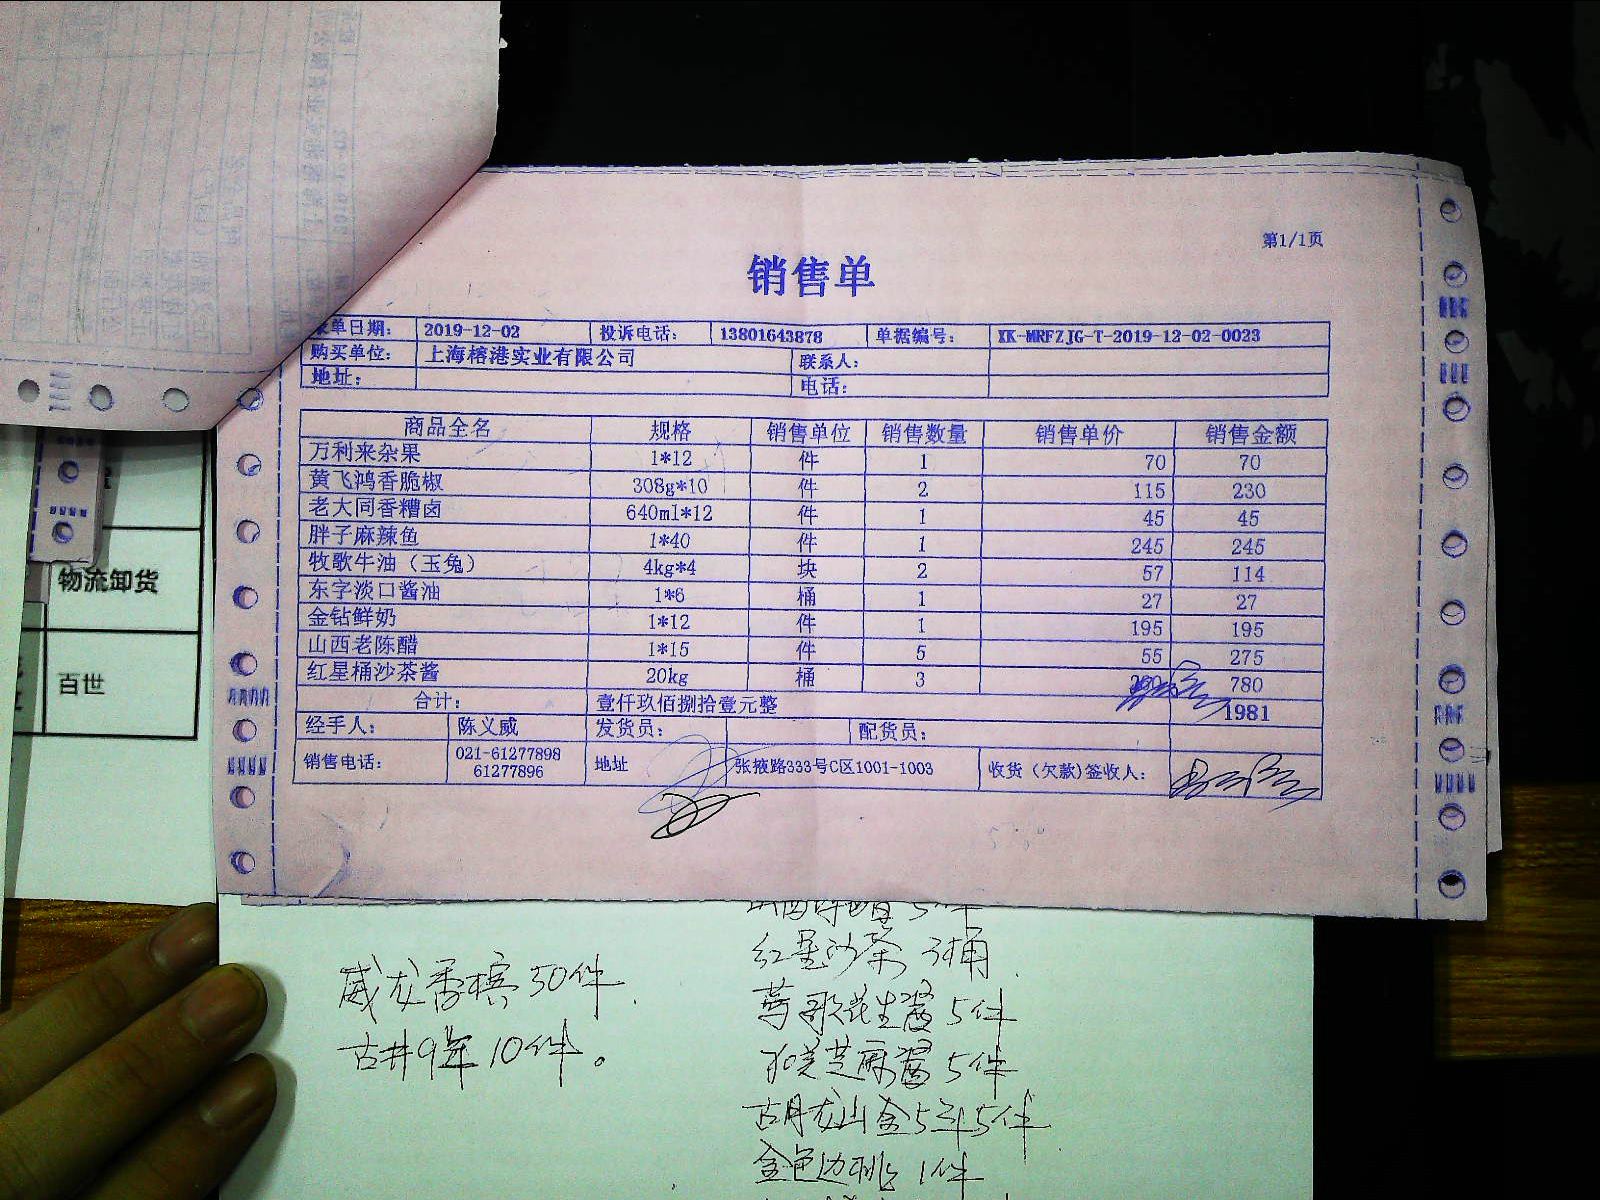 第1/1页
销售单
录单日期： 2019-12-02 投诉电话： 13801643878 单据编号： XK-MRFZJG-T-2019-12-02-0023
购买单位： 上海榕港实业有限公司 联系人：
地址： 电话：
商品全名 规格 销售单位 销售数量 销售单价 销售金额
万利来杂果 1*12 件 1 70 70
黄飞鸿香脆椒 308g*10 件 2 115 230
老大同香糟卤 640ml*12 件 1 45 45
胖子麻辣鱼 1*40 件 1 245 245
牧歌牛油（玉兔） 4kg*4 块 2 57 114
东字淡口酱油 1*6 桶 1 27 27
金钻鲜奶 1*12 件 1 195 195
山西老陈醋 1*15 件 5 55 275
红星桶沙茶酱 20kg 桶 3 260 780
合计： 壹仟玖佰捌拾壹元整 1981
经手人： 陈义威 发货员： 配货员：
销售电话： 021-61277898 61277896 地址 张掖路333号C区1001-1003 收货（欠款)签收人：
物流卸货
百世
红星沙茶 3桶
花生酱 5件
芝麻酱 5件
古月龙山金5年5件
金色边桃 1件
威龙香槟 50件
古井9年 10件。